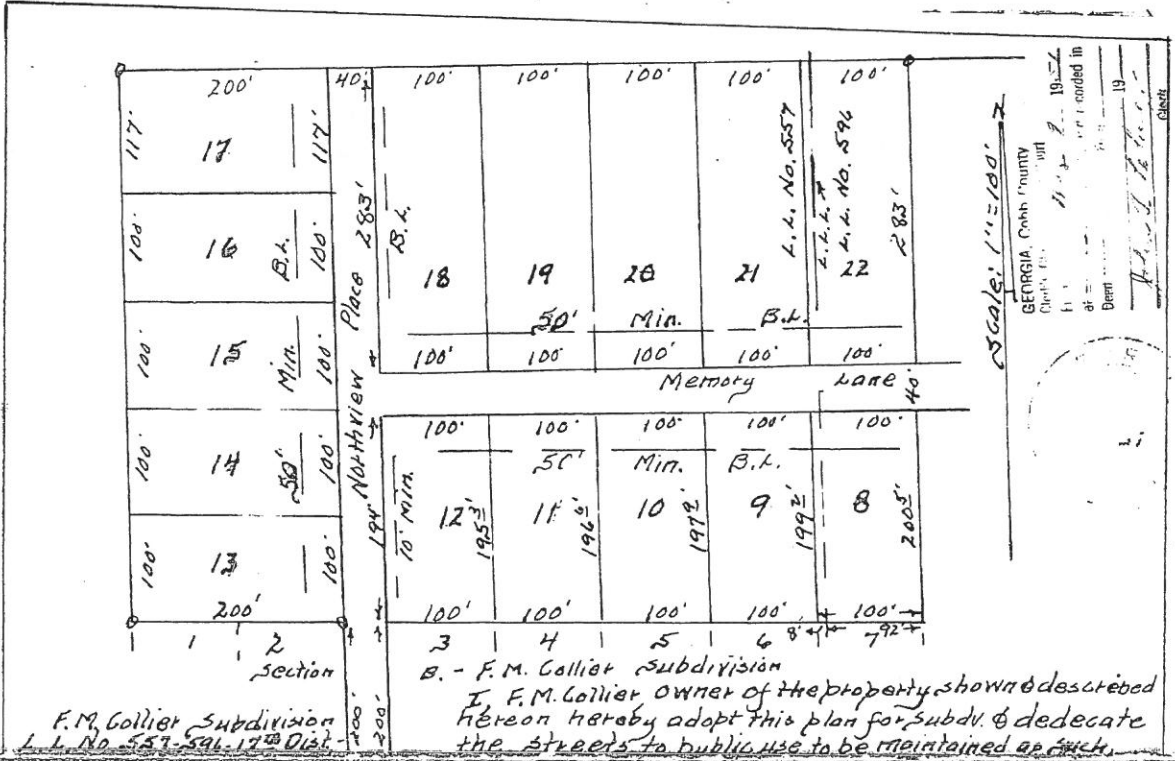 200' 40' 100' 100' 100' 100' 100'
117' 17 117'
100' 16 B.L. 100'
100' 15 Min. 100'
100' 14 50' 100'
100' 13 100'
200'
Northview Place 283'
194'
B.L.
18 19 20 21 22
L.L. No. 557
L.L.L.
L.L. No. 596
283'
50' Min. B.L.
100' 100' 100' 100' 100'
Memory Lane 40'
100' 100' 100' 100' 100'
50' Min. B.L.
10' Min.
12 195 3' 11 196 6' 10 197 9' 9 199 2' 8 200 5'
100' 100' 100' 100' 100'
1 2 3 4 5 6 8' 7 92'
Section B. - F.M. Collier Subdivision
200' 200'
I, F.M. Collier owner of the property shown & described
hereon hereby adopt this plan for subdv. & dedecate
the streets to public use to be maintained as such.
F.M. Collier Subdivision
L.L. No 557-596-17th Dist.
Scale: 1"=100'
GEORGIA, Cobb County
19
recorded in
Deed
19
Clerk